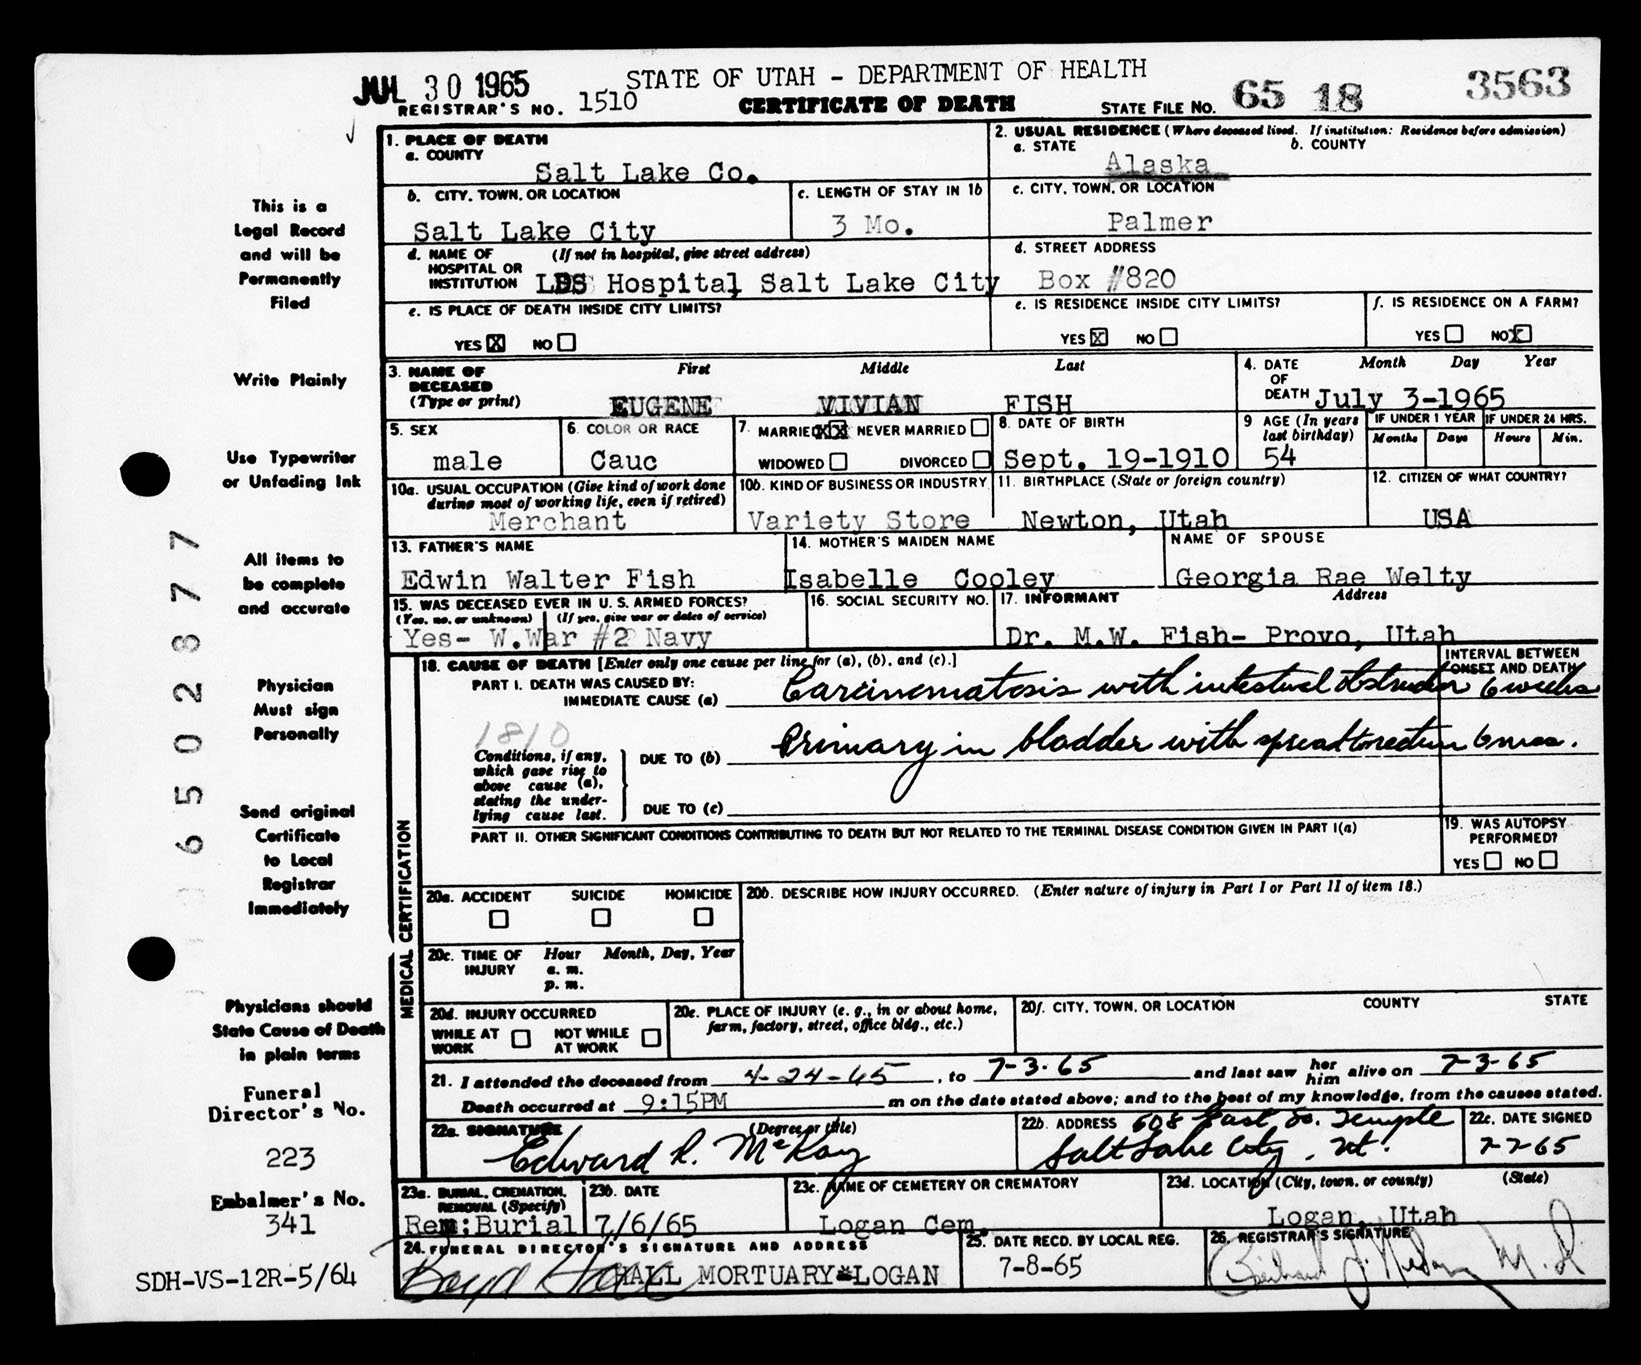 JUL 30 1965
STATE OF UTAH - DEPARTMENT OF HEALTH
REGISTRAR'S NO. 1510
CERTIFICATE OF DEATH
STATE FILE NO. 65 18 3563
This is a
Legal Record
and will be
Permanently
Filed
Write Plainly
Use Typewriter
or Unfading Ink
All items to
be complete
and accurate
Physician
Must sign
Personally
Send original
Certificate
to Local
Registrar
Immediately
Physicians should
State Cause of Death
in plain terms
Funeral
Director's No.
223
Embalmer's No.
341
SDH-VS-12R-5/64
6502877
1. PLACE OF DEATH
a. COUNTY
Salt Lake Co.
2. USUAL RESIDENCE (Where deceased lived. If institution: Residence before admission)
a. STATE b. COUNTY
Alaska
b. CITY, TOWN, OR LOCATION
Salt Lake City
c. LENGTH OF STAY IN 1b
3 Mo.
c. CITY, TOWN, OR LOCATION
Palmer
d. NAME OF (If not in hospital, give street address)
HOSPITAL OR
INSTITUTION LDS Hospital, Salt Lake City
d. STREET ADDRESS
Box #820
e. IS PLACE OF DEATH INSIDE CITY LIMITS?
YES X NO
e. IS RESIDENCE INSIDE CITY LIMITS?
YES X NO
f. IS RESIDENCE ON A FARM?
YES NO X
3. NAME OF First Middle Last
DECEASED
(Type or print) EUGENE VIVIAN FISH
4. DATE Month Day Year
OF
DEATH July 3-1965
5. SEX
male
6. COLOR OR RACE
Cauc
7. MARRIED XX NEVER MARRIED
WIDOWED DIVORCED
8. DATE OF BIRTH
Sept. 19-1910
9 AGE (In years
last birthday)
54
IF UNDER 1 YEAR IF UNDER 24 HRS.
Months Days Hours Min.
10a. USUAL OCCUPATION (Give kind of work done
during most of working life, even if retired)
Merchant
10b. KIND OF BUSINESS OR INDUSTRY
Variety Store
11. BIRTHPLACE (State or foreign country)
Newton, Utah
12. CITIZEN OF WHAT COUNTRY?
USA
13. FATHER'S NAME
Edwin Walter Fish
14. MOTHER'S MAIDEN NAME
Isabelle Cooley
NAME OF SPOUSE
Georgia Rae Welty
15. WAS DECEASED EVER IN U. S. ARMED FORCES?
(Yes, no, or unknown) (If yes, give war or dates of service)
Yes- W.War #2 Navy
16. SOCIAL SECURITY NO.
17. INFORMANT Address
Dr. M.W. Fish- Provo, Utah
MEDICAL CERTIFICATION
18. CAUSE OF DEATH [Enter only one cause per line for (a), (b), and (c).]
INTERVAL BETWEEN
ONSET AND DEATH
PART I. DEATH WAS CAUSED BY:
IMMEDIATE CAUSE (a) Carcinomatosis with intestinal obstruction 6 weeks
1810
Conditions, if any,
which gave rise to
above cause (a),
stating the under-
lying cause last.
DUE TO (b) Primary in bladder with spread to rectum 6 mos.
DUE TO (c)
PART II. OTHER SIGNIFICANT CONDITIONS CONTRIBUTING TO DEATH BUT NOT RELATED TO THE TERMINAL DISEASE CONDITION GIVEN IN PART I(a)
19. WAS AUTOPSY
PERFORMED?
YES NO
20a. ACCIDENT SUICIDE HOMICIDE
20b. DESCRIBE HOW INJURY OCCURRED. (Enter nature of injury in Part I or Part II of item 18.)
20c. TIME OF Hour Month, Day, Year
INJURY a. m.
p. m.
20d. INJURY OCCURRED
WHILE AT WORK NOT WHILE AT WORK
20e. PLACE OF INJURY (e. g., in or about home,
farm, factory, street, office bldg., etc.)
20f. CITY, TOWN, OR LOCATION COUNTY STATE
21. I attended the deceased from 4-24-65, to 7-3-65 and last saw her him alive on 7-3-65
Death occurred at 9:15PM m on the date stated above; and to the best of my knowledge, from the causes stated.
22a. SIGNATURE (Degree or title)
Edward R. McKay
22b. ADDRESS 508 East So. Temple
Salt Lake City, Ut.
22c. DATE SIGNED
7-7-65
23a. BURIAL, CREMATION,
REMOVAL (Specify)
Rem;Burial
23b. DATE
7/6/65
23c. NAME OF CEMETERY OR CREMATORY
Logan Cem.
23d. LOCATION (City, town, or county) (State)
Logan, Utah
24. FUNERAL DIRECTOR'S SIGNATURE AND ADDRESS
HALL MORTUARY*LOGAN
25. DATE RECD. BY LOCAL REG.
7-8-65
26. REGISTRAR'S SIGNATURE
M.D.